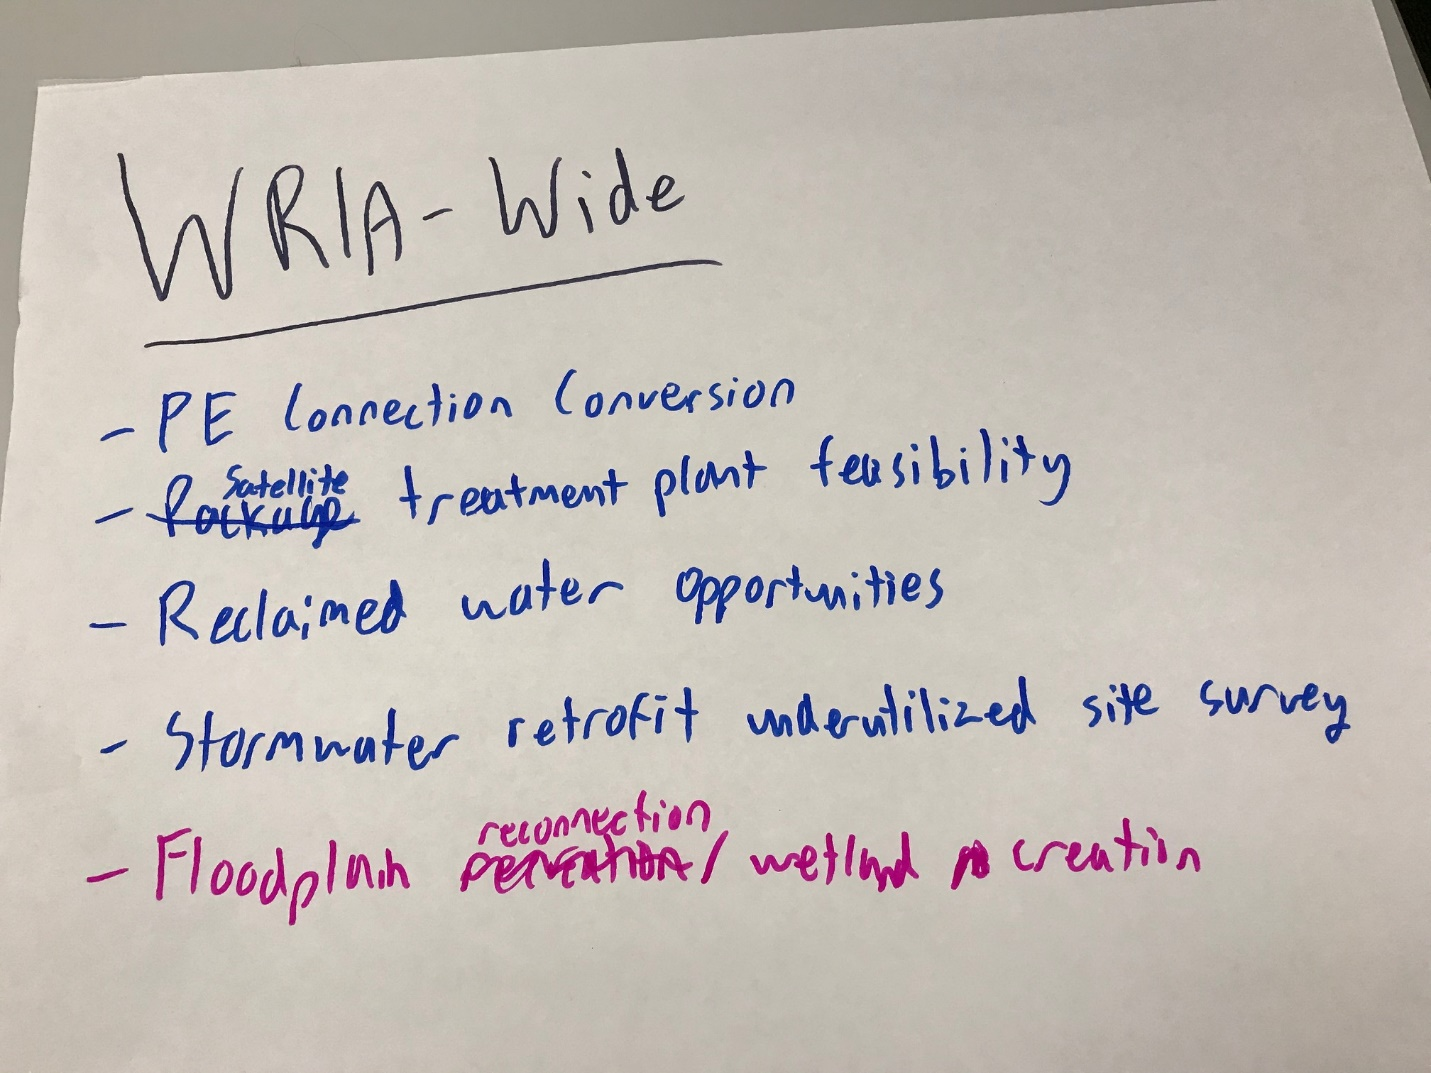 WRIA-Wide
- PE Connection Conversion
- Package Satellite treatment plant feasibility
- Reclaimed water opportunities
- Stormwater retrofit underutilized site survey
- Floodplain reconnection / wetland creation